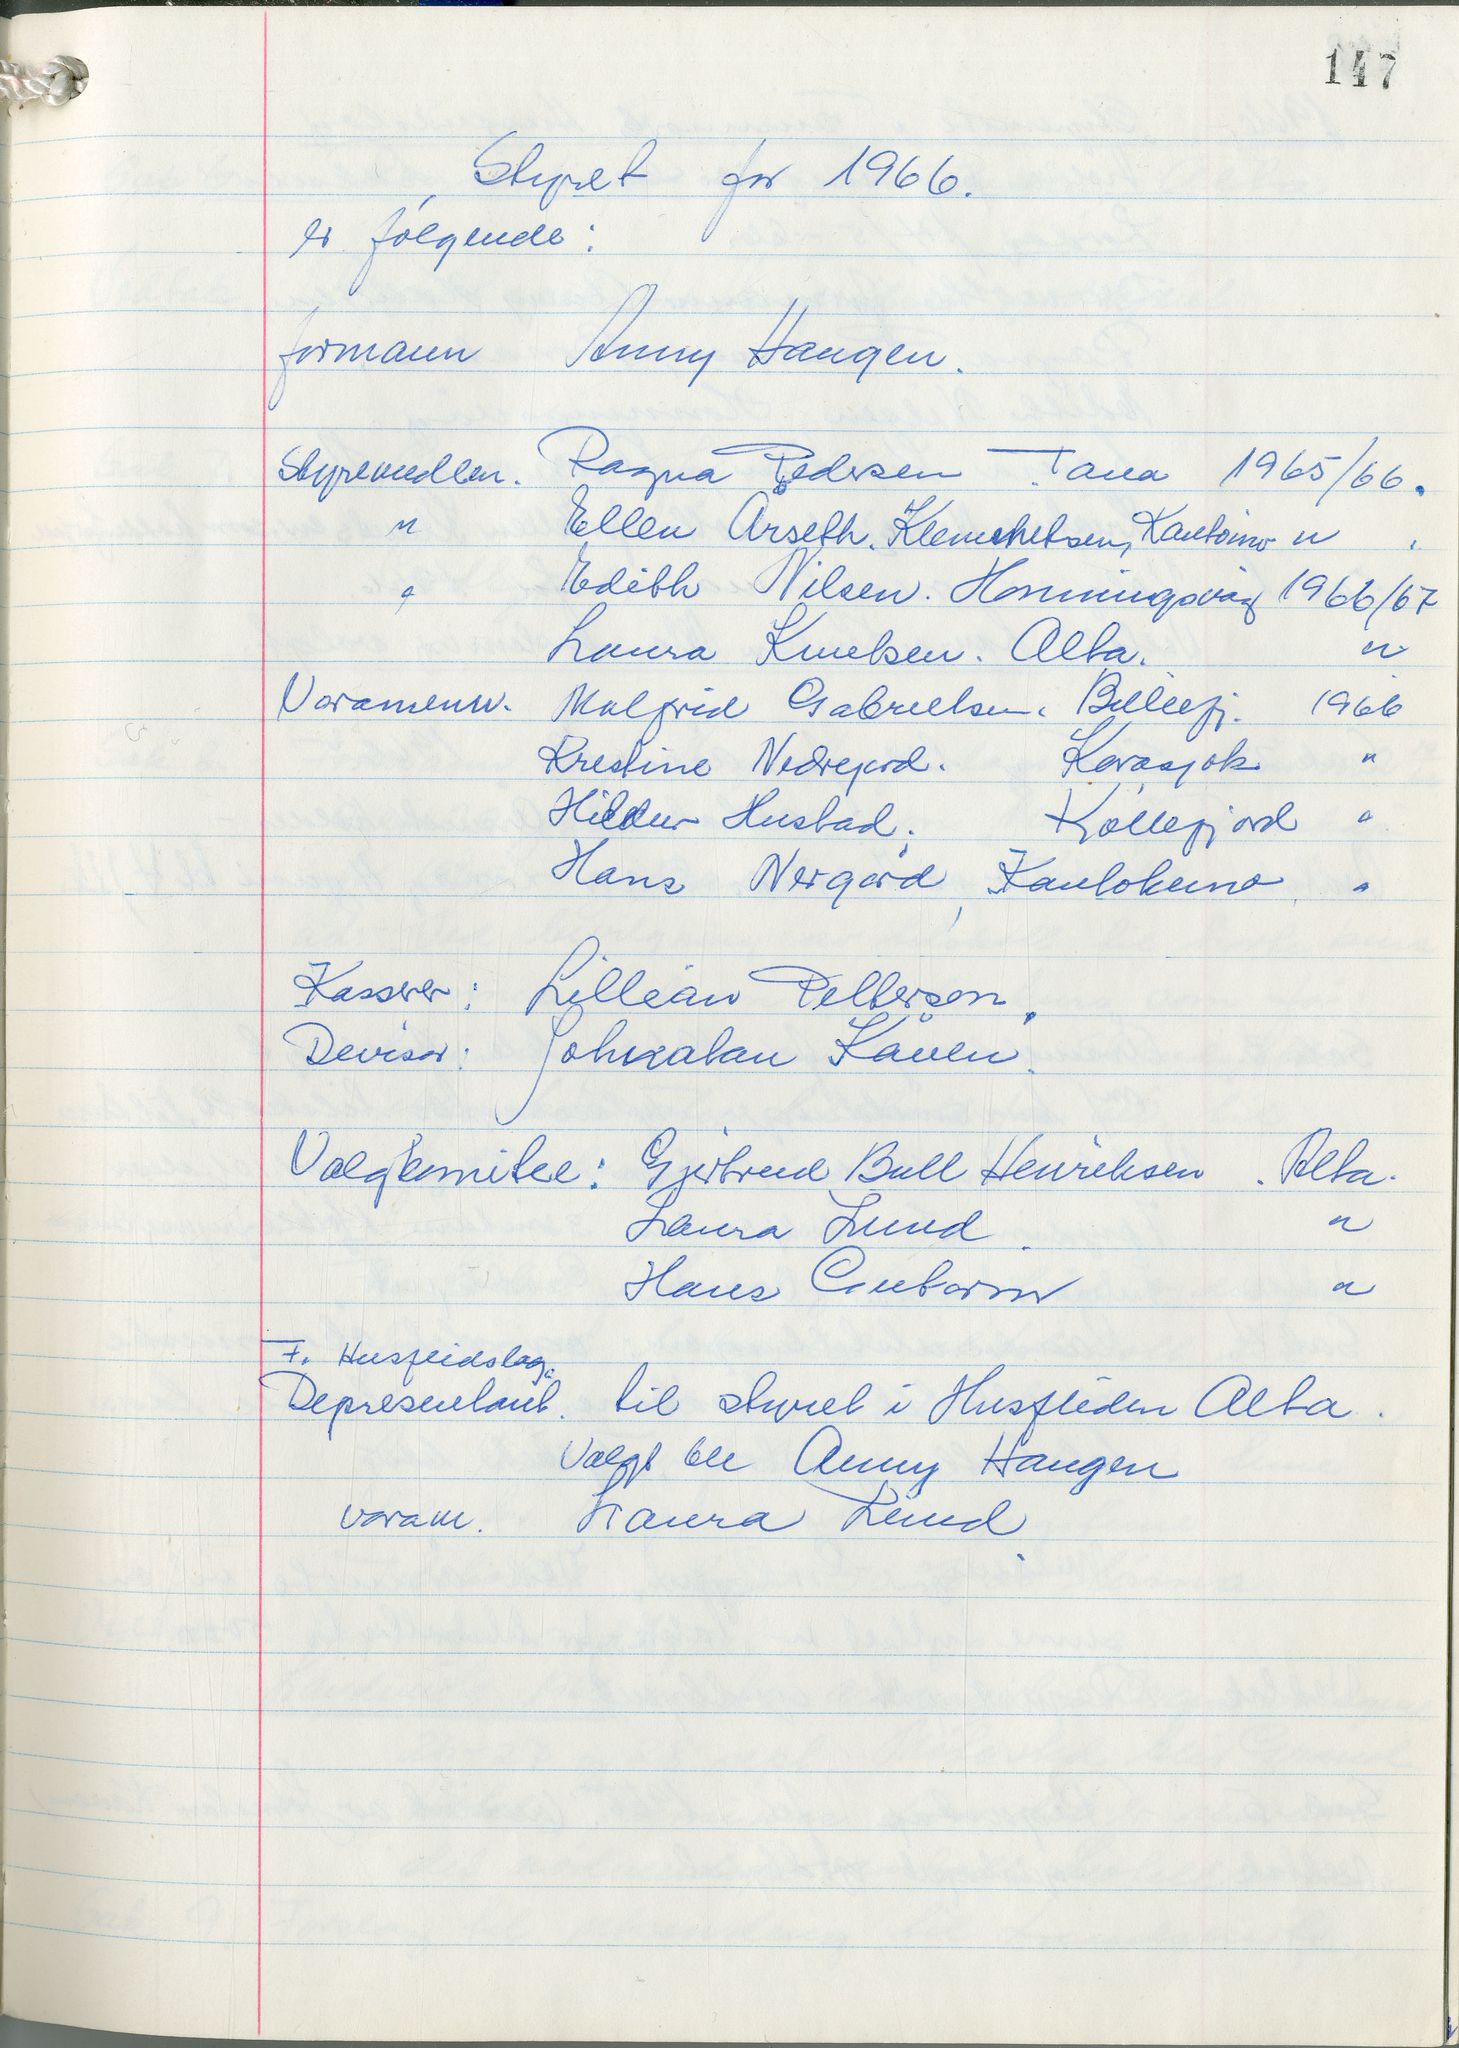 147
Styret for 1966.
er følgende:
formann Anny Haugen.
Styremedlem. Ragna Pedersen Tana 1965/66.
" Ellen Årseth. Klemetsen, Kautoino "
" Edith Nilsen. Honningsvåg 1966/67
Laura Knutsen. Alta. "
Varamenn. Malfrid Gabrielsen. Billefj. 1966
Kristine Nedregård. Karasjok "
Hildur Husbad. Kjøllefjord "
Hans Nergård, Kautokeino "
Kasserer: Lillian Pettersen.
Revisor: Johnatan Kåven.
Valgkomitee: Gjertrud Bull Henriksen. Alta.
Laura Lund. "
Hans "
F. Husflidslag.
Representant. til styret i Husfliden Alta.
Valgt ble Anny Haugen
varam. Laura Lund.